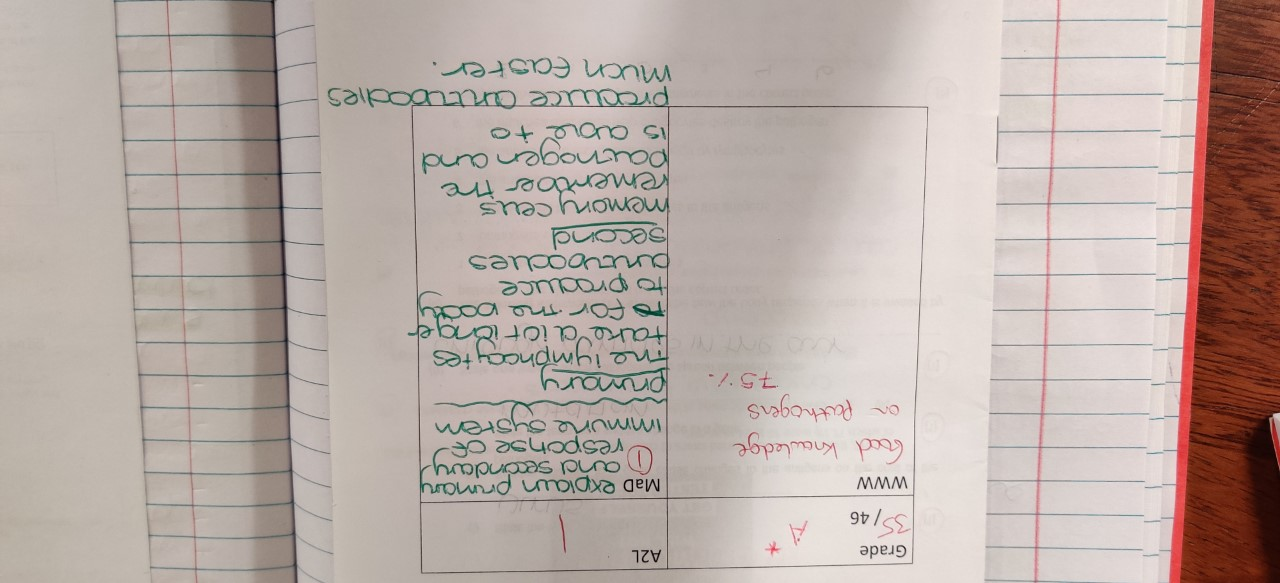 Grade
35/46
A*
A2L
1
WWW
Good knowledge
on Pathogens
75%.
MaD explain primary
① and secondary
response of
immune system
primary
The lymphocytes
take a lot longer
to for the body
to produce
antibodies
second
memory cells
remember the
pathogen and
is able to
produce antibodies
much faster.